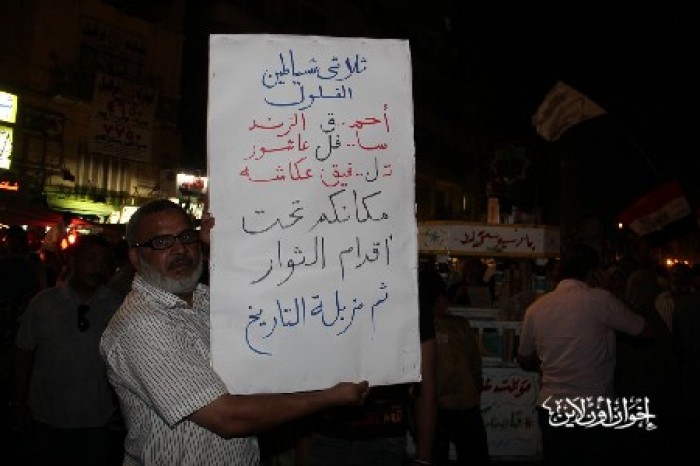 ثلاثى شياطين
الفلول
أحمـ..ق الزند
سا..فل عاشور
تل..فيق عكاشه
مكانكم تحت
اقدام الثوار
ثم مزبلة التاريخ
إخوان أون لاين